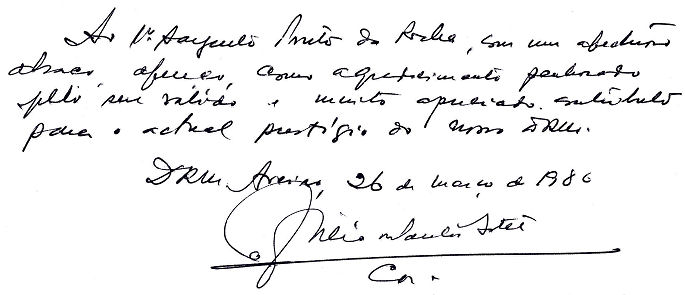 Ao 1º Sargento Brito da Rocha, com um afectuoso
abraço, ofereço, como agradecimento penhorado
pelo seu válido e muito apreciado contributo
para o actual prestígio do nosso DRM.
DRM. Aveiro, 26 de março de 1986
Cor.